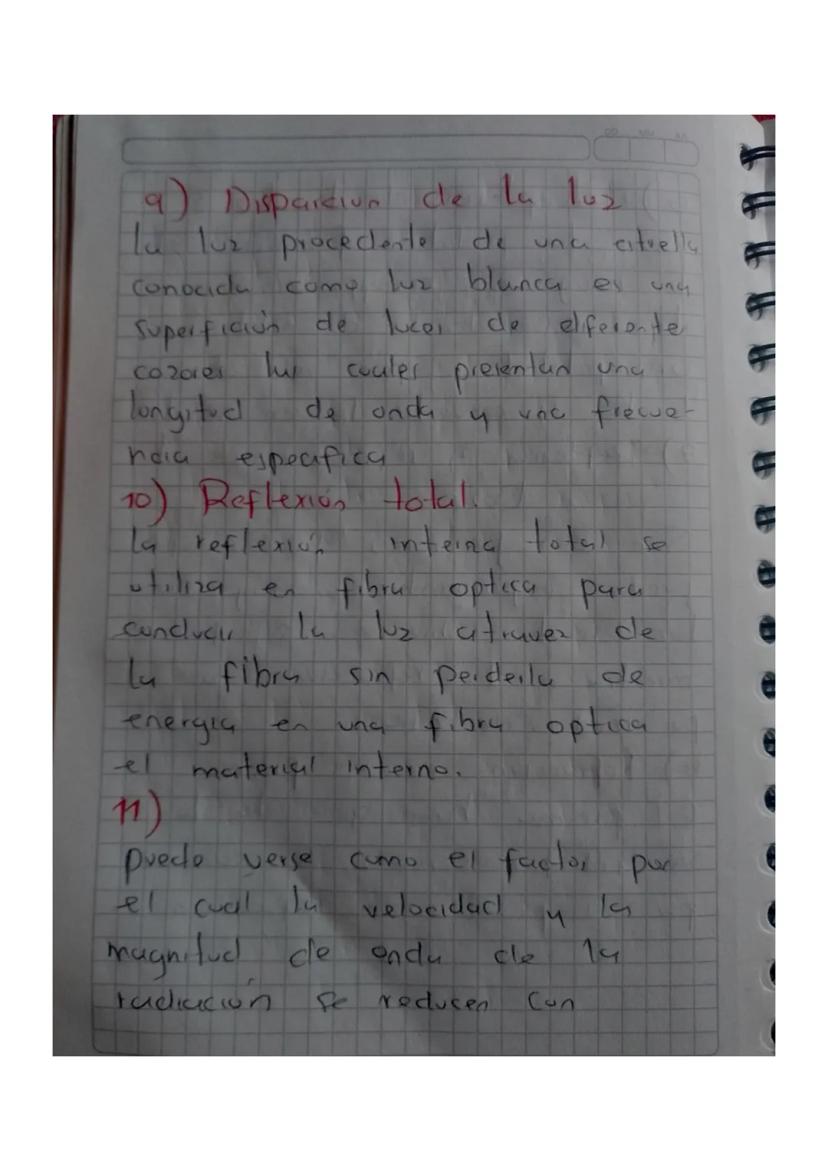 9) Disparciun de la luz
la luz procedente de una citrella
conocida como luz blanca es una
superficiún de luces de elferente
cozores lus cuules presentan una
longitud de onda y una frecue-
ncia especifica
10) Reflexión total.
la reflexión interna total se
utiliza en fibra optica para
conducir la luz atravez de
la fibra sin perderla de
energia en una fibra optica
el material interno.
11)
puede verse como el factor por
el cual la velocidad y la
magnitud de onda de la
radiación se reducen con